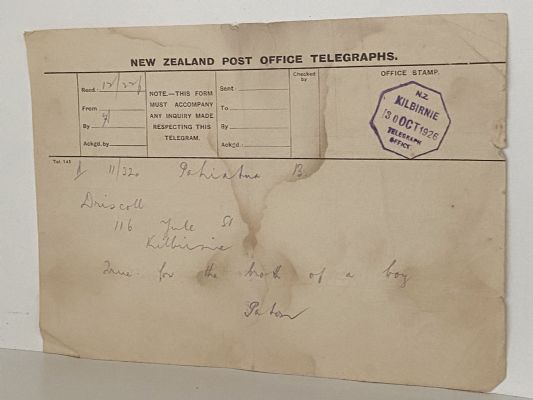 NEW ZEALAND POST OFFICE TELEGRAPHS.
Recd. 12/22
From
By
Ackgd. by
NOTE.—THIS FORM
MUST ACCOMPANY
ANY INQUIRY MADE
RESPECTING THIS
TELEGRAM.
Sent:
To
By
Ackgd.:
Checked
by
OFFICE STAMP.
N.Z.
KILBIRNIE
30 OCT 1926
TELEGRAPH
OFFICE.
Tel. 143
11/32a Pahiatua B
Driscoll
116 Yule St
Kilbirnie
True for the broth of a boy
Paton